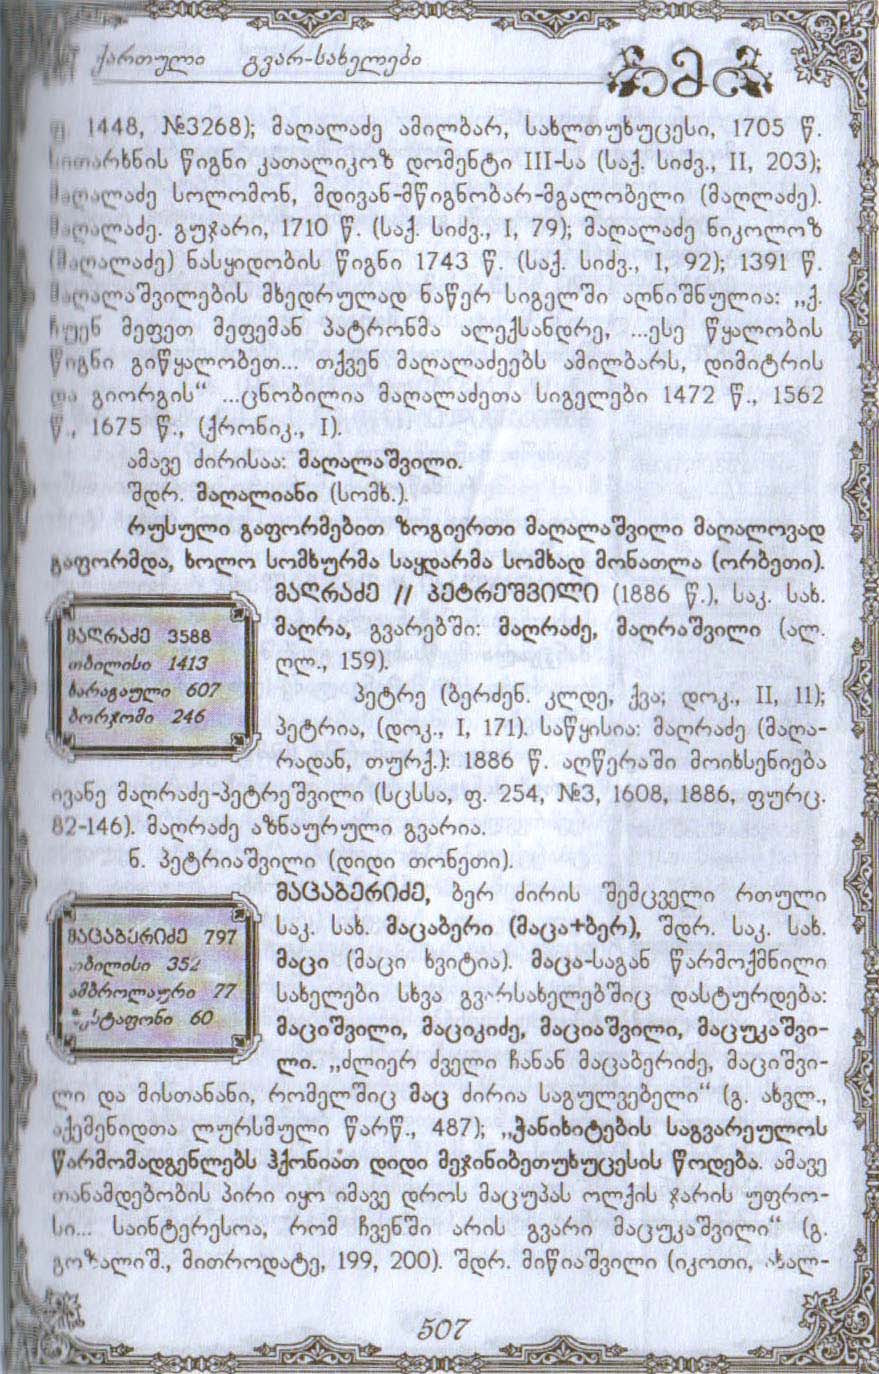 ქართული გვარ-სახელები
მ
1448, №3268); მაღალაძე ამილბარ, სახლთუხუცესი, 1705 წ.
სითარხნის წიგნი კათალიკოზ დომენტი III-სა (საქ. სიძვ., II, 203);
მაღალაძე სოლომონ, მდივან-მწიგნობარ-მგალობელი (მაღლაძე).
მაღალაძე. გუჯარი, 1710 წ. (საქ. სიძვ., I, 79); მაღალაძე ნიკოლოზ
(მაღალაძე) ნასყიდობის წიგნი 1743 წ. (საქ. სიძვ., I, 92); 1391 წ.
მაღალაშვილების მხედრულად ნაწერ სიგელში აღნიშნულია: „ქ.
ჩუენ მეფეთ მეფემან პატრონმა ალექსანდრე, ...ესე წყალობის
წიგნი გიწყალობეთ... თქვენ მაღალაძეებს ამილბარს, დიმიტრის
და გიორგის“ ...ცნობილია მაღალაძეთა სიგელები 1472 წ., 1562
წ., 1675 წ., (ქრონიკ., I).
ამავე ძირისაა: მაღალაშვილი.
შდრ. მაღალიანი (სომხ.).
რუსული გაფორმებით ზოგიერთი მაღალაშვილი მაღალოვად
გაფორმდა, ხოლო სომხურმა საყდარმა სომხად მონათლა (ორბეთი).
მაღრაძე // პეტრეშვილი (1886 წ.), საკ. სახ.
მაღრა, გვარებში: მაღრაძე, მაღრაშვილი (ალ.
ღლ., 159).
პეტრე (ბერძენ. კლდე, ქვა; დოკ., II, 11);
პეტრია, (დოკ., I, 171). საწყისია: მაღრაძე (მაღა-
რადან, თურქ.): 1886 წ. აღწერაში მოიხსენიება
ივანე მაღრაძე-პეტრეშვილი (სცსსა, ფ. 254, №3, 1608, 1886, ფურც.
82-146). მაღრაძე აზნაურული გვარია.
ნ. პეტრიაშვილი (დიდი თონეთი).
მაღრაძე 3588
თბილისი 1413
ხარაგაული 607
ბორჯომი 246
მაცაბერიძე, ბერ ძირის შემცველი რთული
საკ. სახ. მაცაბერი (მაცა+ბერ), შდრ. საკ. სახ.
მაცი (მაცი ხვიტია). მაცა-საგან წარმოქმნილი
სახელები სხვა გვარსახელებშიც დასტურდება:
მაციშვილი, მაციკიძე, მაციაშვილი, მაცუკაშვი-
ლი. „ძლიერ ძველი ჩანან მაცაბერიძე, მაციშვი-
ლი და მისთანანი, რომელშიც მაც ძირია საგულვებელი“ (გ. ახვლ.,
აქემენიდთა ლურსმული წარწ., 487); „ჭანიხიტების საგვარეულოს
წარმომადგენლებს ჰქონიათ დიდი მეჯინიბეთუხუცესის წოდება. ამავე
თანამდებობის პირი იყო იმავე დროს მაცუპას ოლქის ჯარის უფრო-
სი... საინტერესოა, რომ ჩვენში არის გვარი მაცუკაშვილი“ (გ.
გოზალიშ., მითროდატე, 199, 200). შდრ. მიწიაშვილი (იკოთი, ახალ-
მაცაბერიძე 797
თბილისი 352
ამბროლაური 77
ზესტაფონი 60
507